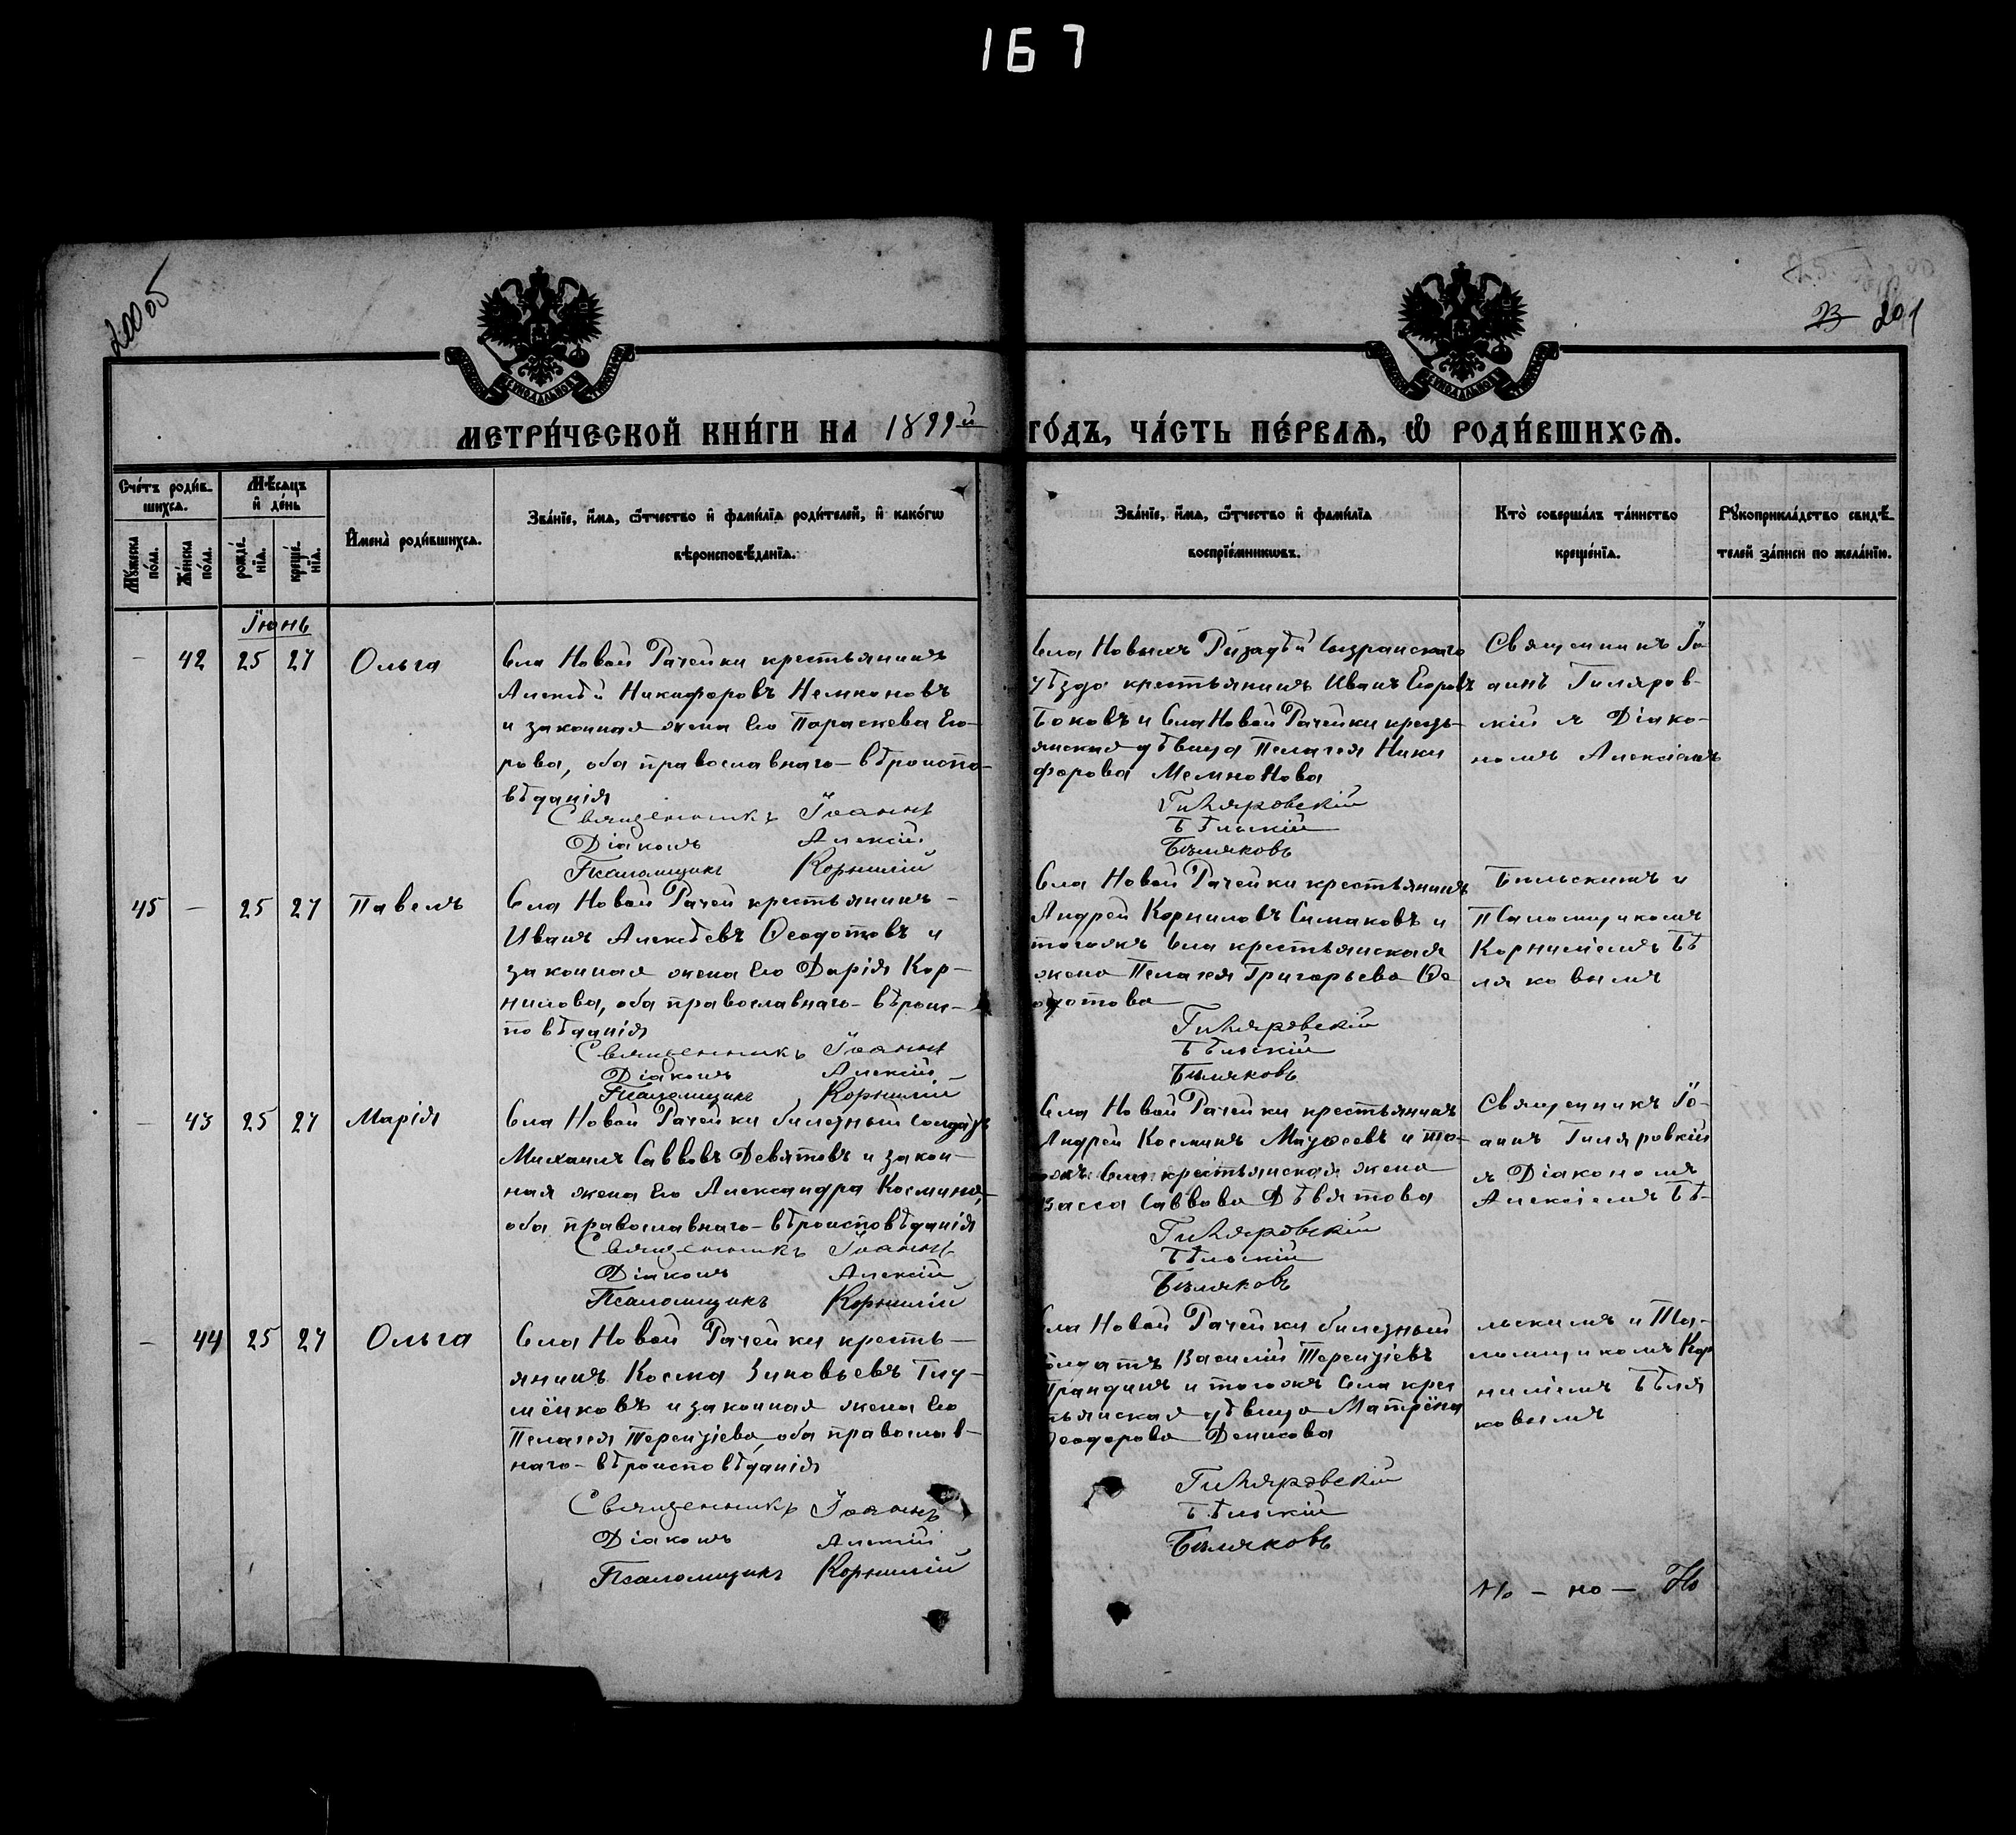 167
200 об
23 201
МЕТРИ́ЧЕСКОЙ КНИ́ГИ НА 1899й ГО́ДЪ, ЧА́СТЬ ПЕ́РВАѦ, Ѡ РОДИ́ВШИХСѦ.
Сче́тъ роди́в-
шихсѧ.
Мѣ́сѧцъ
и҆ де́нь
Мꙋ́жеска по́ла.
Же́нска по́ла.
рожде́-нїѧ.
креще́-нїѧ.
И҆мена̀ роди́вшихсѧ.
Зва́нїе, и҆́мѧ, ѻ҆́тчество и҆ фами́лїѧ роди́телей, и҆ како́гѡ
вѣроисповѣ́данїѧ.
Зва́нїе, и҆́мѧ, ѻ҆́тчество и҆ фами́лїѧ
воспрїе́мникѡвъ.
Кто̀ соверша́лъ та́инство
креще́нїѧ.
Рꙋкоприкла́дство свидѣ́-
телей за́писи по жела́нїю.
Іюнь
— 42 25 27 Ольга
Села Новой Рачейки крестьянинъ
Алексѣй Никифоровъ Немноновъ
и законная жена его Параскева Его-
рова, оба православнаго вѣроиспо-
вѣданія
Священникъ Іоаннъ
Діаконъ Алексій
Псаломщикъ Корнилій
Села Новыхъ Ризадѣй Сызранскаго
уѣзда крестьянинъ Иванъ Егоровъ
Боковъ и села Новой Рачейки кресть-
янская дѣвица Пелагея Ники
форова Мемнонова
Гиляровскій
Бѣльскій
Бѣляковъ
Священникъ Іо
аннъ Гиляров-
скій съ Діако-
номъ Алексіемъ
45 — 25 27 Павелъ
Села Новой Рачей крестьянинъ
Иванъ Алексѣевъ Ѳеодотовъ и
законная жена его Дарія Кор-
нилова, оба православнаго вѣроис-
повѣданія
Священникъ Іоаннъ
Діаконъ Алексій
Псаломщикъ Корнилій
Села Новой Рачейки крестьянинъ
Андрей Корниловъ Симаковъ и
тогожъ села крестьянская
жена Пелагея Григорьева Ѳе
одотова
Гиляровскій
Бѣльскій
Бѣляковъ
Бѣльскимъ и
Псаломщикомъ
Корниліемъ Бѣ
ляковымъ
— 43 25 27 Марія
Села Новой Рачейки билетный солдатъ
Михаилъ Савво­въ Девятовъ и закон-
ная жена его Александра Космина,
оба православнаго вѣроисповѣданія
Священникъ Іоаннъ
Діаконъ Алексій
Псаломщикъ Корнилій
Села Новой Рачейки крестьянинъ
Андрей Косминъ и то-
гожъ села крестьянская жена
Васса Саввова Дѣвятова
Гиляровскій
Бѣльскій
Бѣляковъ
Священникъ Іо-
аннъ Гиляровскій
съ Діакономъ
Алексіемъ Бѣ-
— 44 25 27 Ольга
Села Новой Рачейки кресть-
янинъ Косма Зиновьевъ
и законная жена его
Пелагея Терентіева, оба православ-
наго вѣроисповѣданія
Священникъ Іоаннъ
Діаконъ Алексій
Псаломщикъ Корнилій
Села Новой Рачейки билетный
солдатъ Василій Терентіевъ
и тогожъ села крес
тьянская дѣвица Матрёна
Ѳеодорова Денисова
Гиляровскій
Бѣльскій
Бѣляковъ
льскимъ и Пса-
ломщикомъ Кор
ниліемъ Бѣля
ковымъ